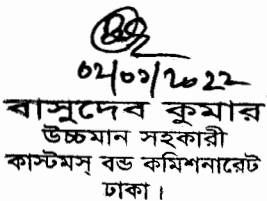 ০২/০১/২০২২
বাসুদেব কুমার
উচ্চমান সহকারী
কাস্টমস্ বন্ড কমিশনারেট
ঢাকা।